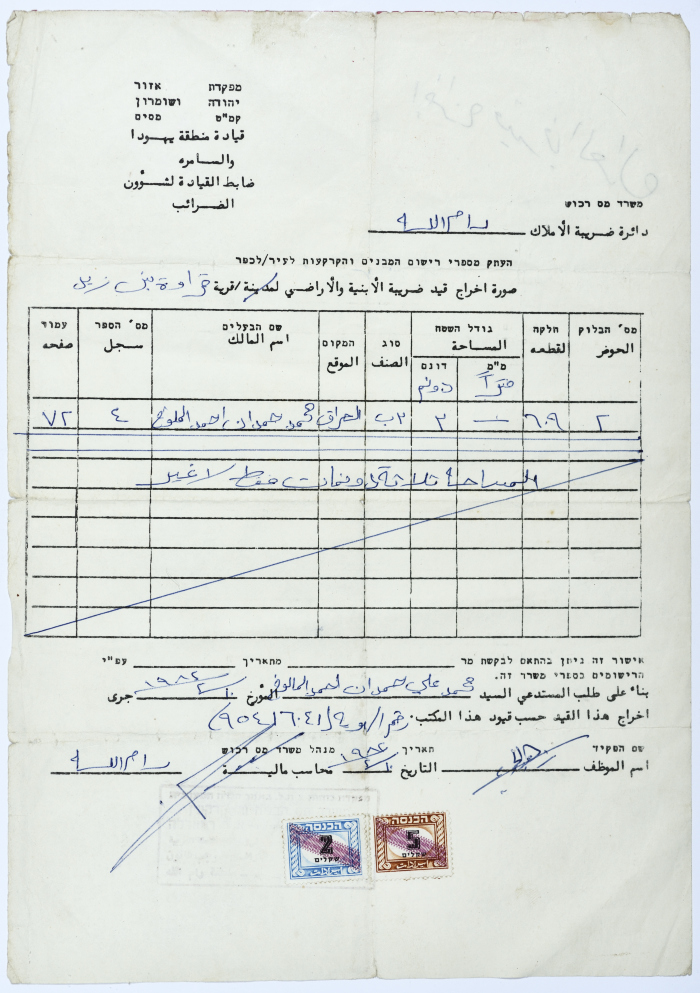 מפקדת אזור
יהודה ושומרון
קמ"ט מסים
قيادة منطقة يهودا
والسامره
ضابط القيادة لشؤون
الضرائب
משרד מס רכוש
دائرة ضريبة الأملاك رام الله
העתק מספרי רישום המבנים והקרקעות לעיר/לכפר
صورة اخراج قيد ضريبة الأبنية والأراضي لمدينة/قرية قراوة بني زيد
מס' הבלוק חלקה גודל השטח סוג המקום שם הבעלים מס' הספר עמוד
الحوض لقطعه المساحة الصنف الموقع اسم المالك سجل صفحه
מ"מ דונם
متراً دونم
٢ ٦٠٩ — ٣ ٣ب العراق محمد حمدان احمد الملوح ٤ ٧٢
المساحة ثلاثة دونمات فقط لا غير
אישור זה ניתן בהתאם לבקשת מר מתאריך עפ"י
הרישומים בספרי משרד זה.
بناء على طلب المستدعي السيد محمد علي حمدان احمد المالوح المؤرخ ١٩٨٤ جرى
اخراج هذا القيد حسب قيود هذا المكتب. رقم الهوية
שם הפקיד תאריך מנהל משרד מס רכוש
اسم الموظف التاريخ محاسب مالية رام الله
הכנסה
2
שקלים
ايرادات
הכנסה
5
שקלים
ايرادات